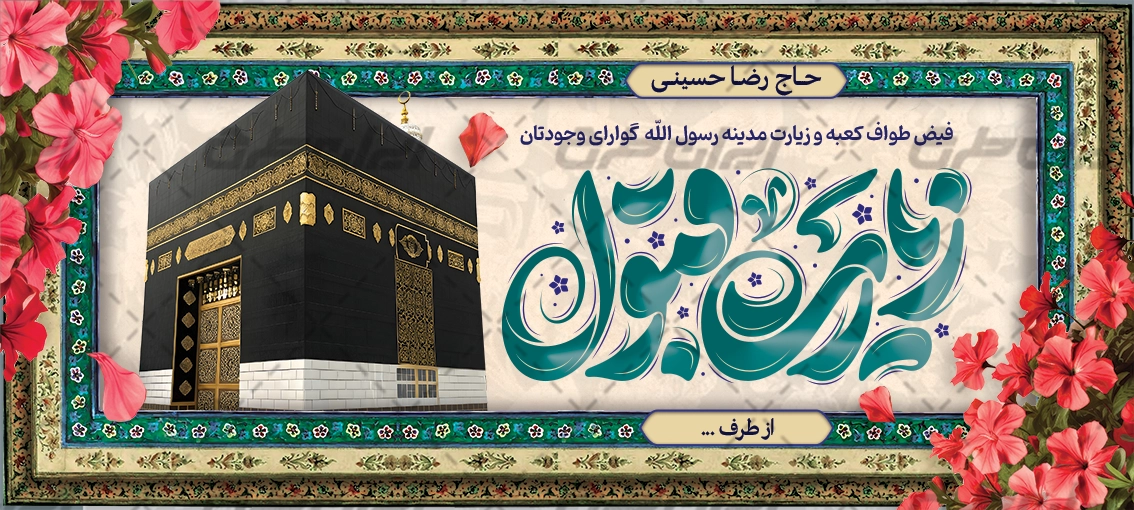 حاج رضا حسینی
فیض طواف کعبه و زیارت مدینه رسول الله گوارای وجودتان
زیارت قبول
از طرف ...